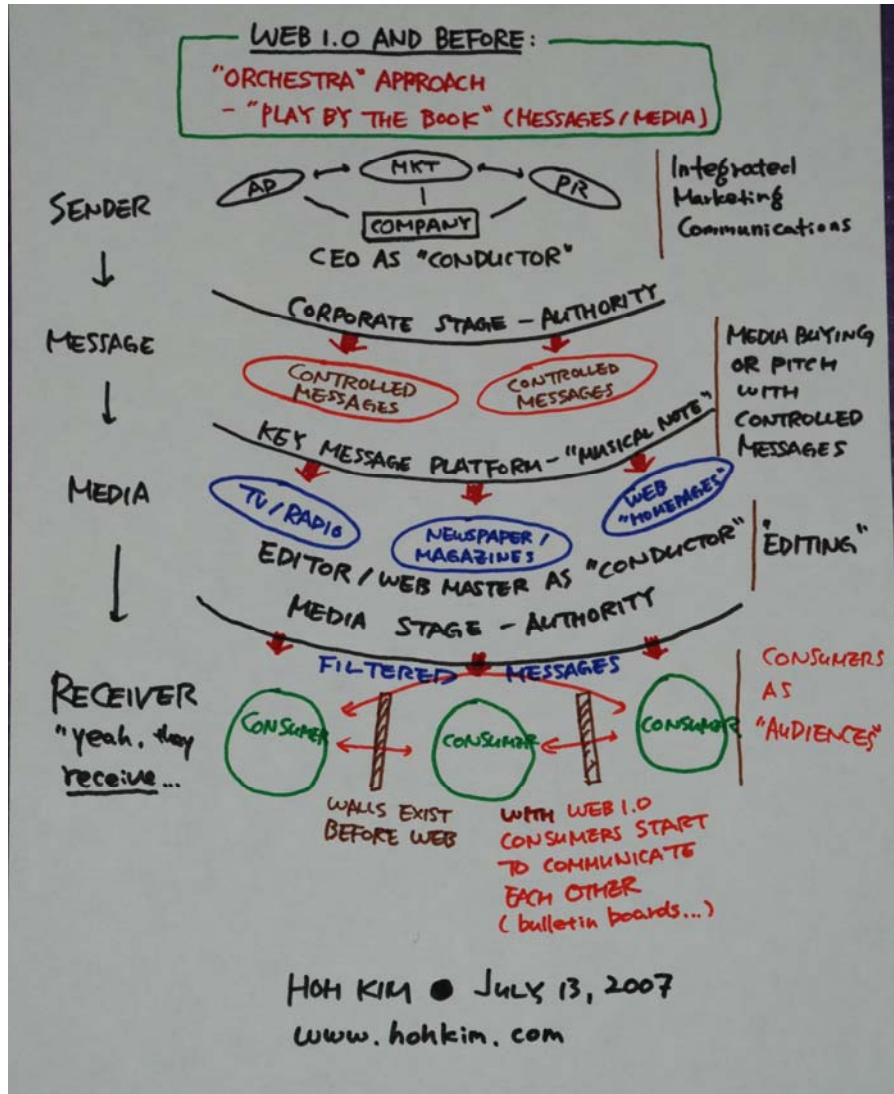 WEB 1.0 AND BEFORE:
"ORCHESTRA" APPROACH
- "PLAY BY THE BOOK" (MESSAGES/MEDIA)
SENDER
AD
MKT
PR
COMPANY
CEO AS "CONDUCTOR"
Integrated
Marketing
Communications
CORPORATE STAGE - AUTHORITY
MESSAGE
CONTROLLED
MESSAGES
CONTROLLED
MESSAGES
MEDIA BUYING
OR PITCH
WITH
CONTROLLED
MESSAGES
KEY MESSAGE PLATFORM - "MUSICAL NOTE"
MEDIA
TV/RADIO
NEWSPAPER/
MAGAZINES
WEB
"HOMEPAGES"
EDITOR/WEB MASTER AS "CONDUCTOR"
"EDITING"
MEDIA STAGE - AUTHORITY
FILTERED MESSAGES
RECEIVER
"yeah, they
receive...
CONSUMER
CONSUMER
CONSUMER
CONSUMERS
AS
"AUDIENCES"
WALLS EXIST
BEFORE WEB
WITH WEB 1.0
CONSUMERS START
TO COMMUNICATE
EACH OTHER
(bulletin boards...)
HOH KIM ● JULY 13, 2007
www.hohkim.com